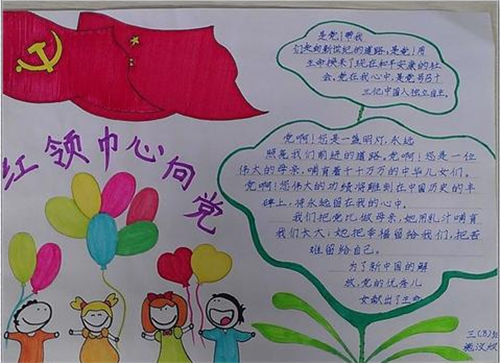 红领巾心向党
是党!带我
们走向新世纪的道路,是党!用
生命换来了现在和平安康的社
会,党在我心中,是党另13个
三亿中国人独立自主。
党啊!您是一盏明灯,永远
照亮我们前进的道路,党啊!您是一位
伟大的母亲,哺育着千千万万的中华儿女们。
党啊!您伟大的功绩将雕刻在中国历史的丰
碑上,将永远留在我的心中。
我们把党儿做母亲,她用乳汁哺育
我们长大;她把幸福留给我们,把苦
难留给自己。
为了新中国的解
放,党的优秀儿
女献出了生命
三(8)班